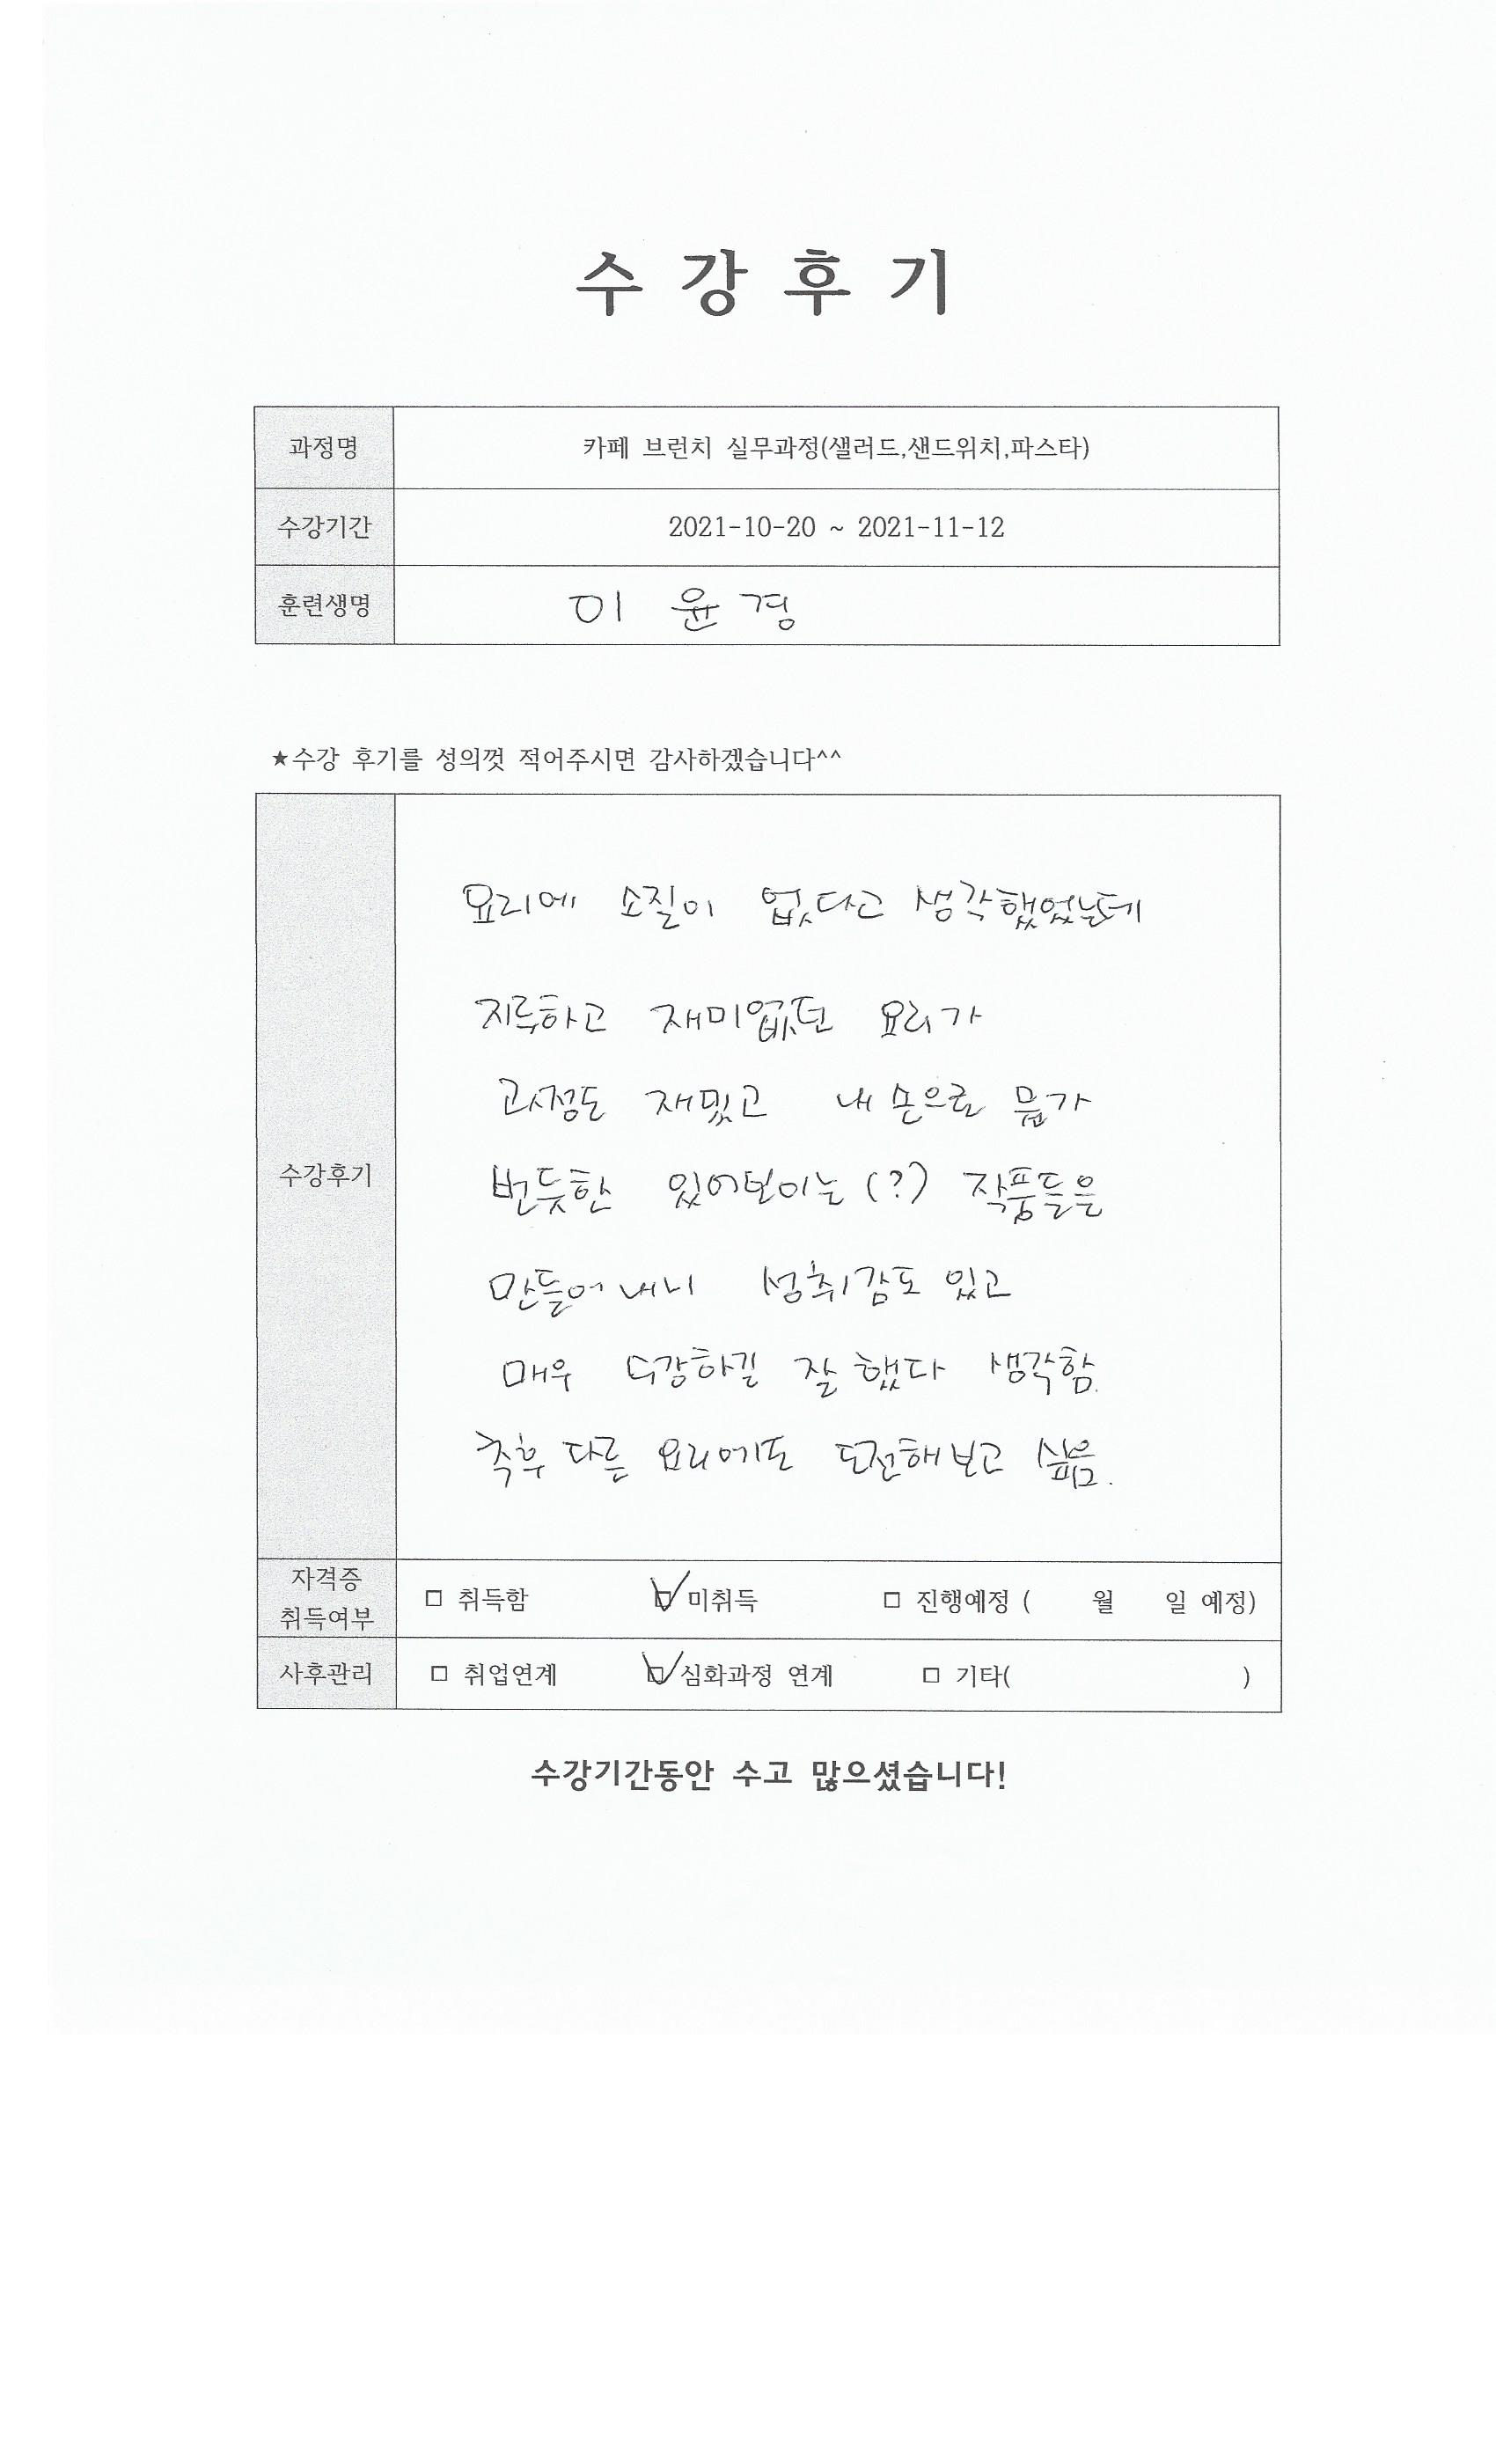 수 강 후 기
과정명 카페 브런치 실무과정(샐러드,샌드위치,파스타)
수강기간 2021-10-20 ~ 2021-11-12
훈련생명 이 윤 경
★수강 후기를 성의껏 적어주시면 감사하겠습니다^^
수강후기
요리에 소질이 없다고 생각했었는데
지루하고 재미없던 요리가
과정도 재밌고 내 손으로 뭔가
번듯한 있어보이는(?) 작품들을
만들어 내니 성취감도 있고
매우 수강하길 잘 했다 생각함.
추후 다른 요리에도 도전해보고 싶음.
자격증
취득여부 □ 취득함 ☑ 미취득 □ 진행예정 ( 월 일 예정)
사후관리 □ 취업연계 ☑ 심화과정 연계 □ 기타( )
수강기간동안 수고 많으셨습니다!